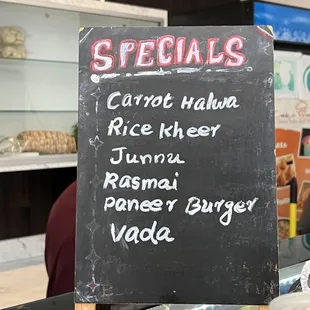 SPECIALS
Carrot Halwa
Rice Kheer
Junnu
Rasmai
Paneer Burger
Vada